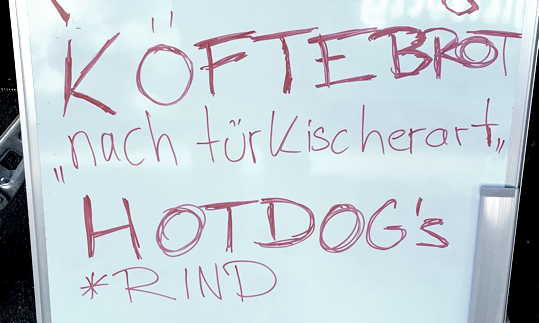 KÖFTEBROT
„nach türkischerart„
HOTDOG's
*RIND